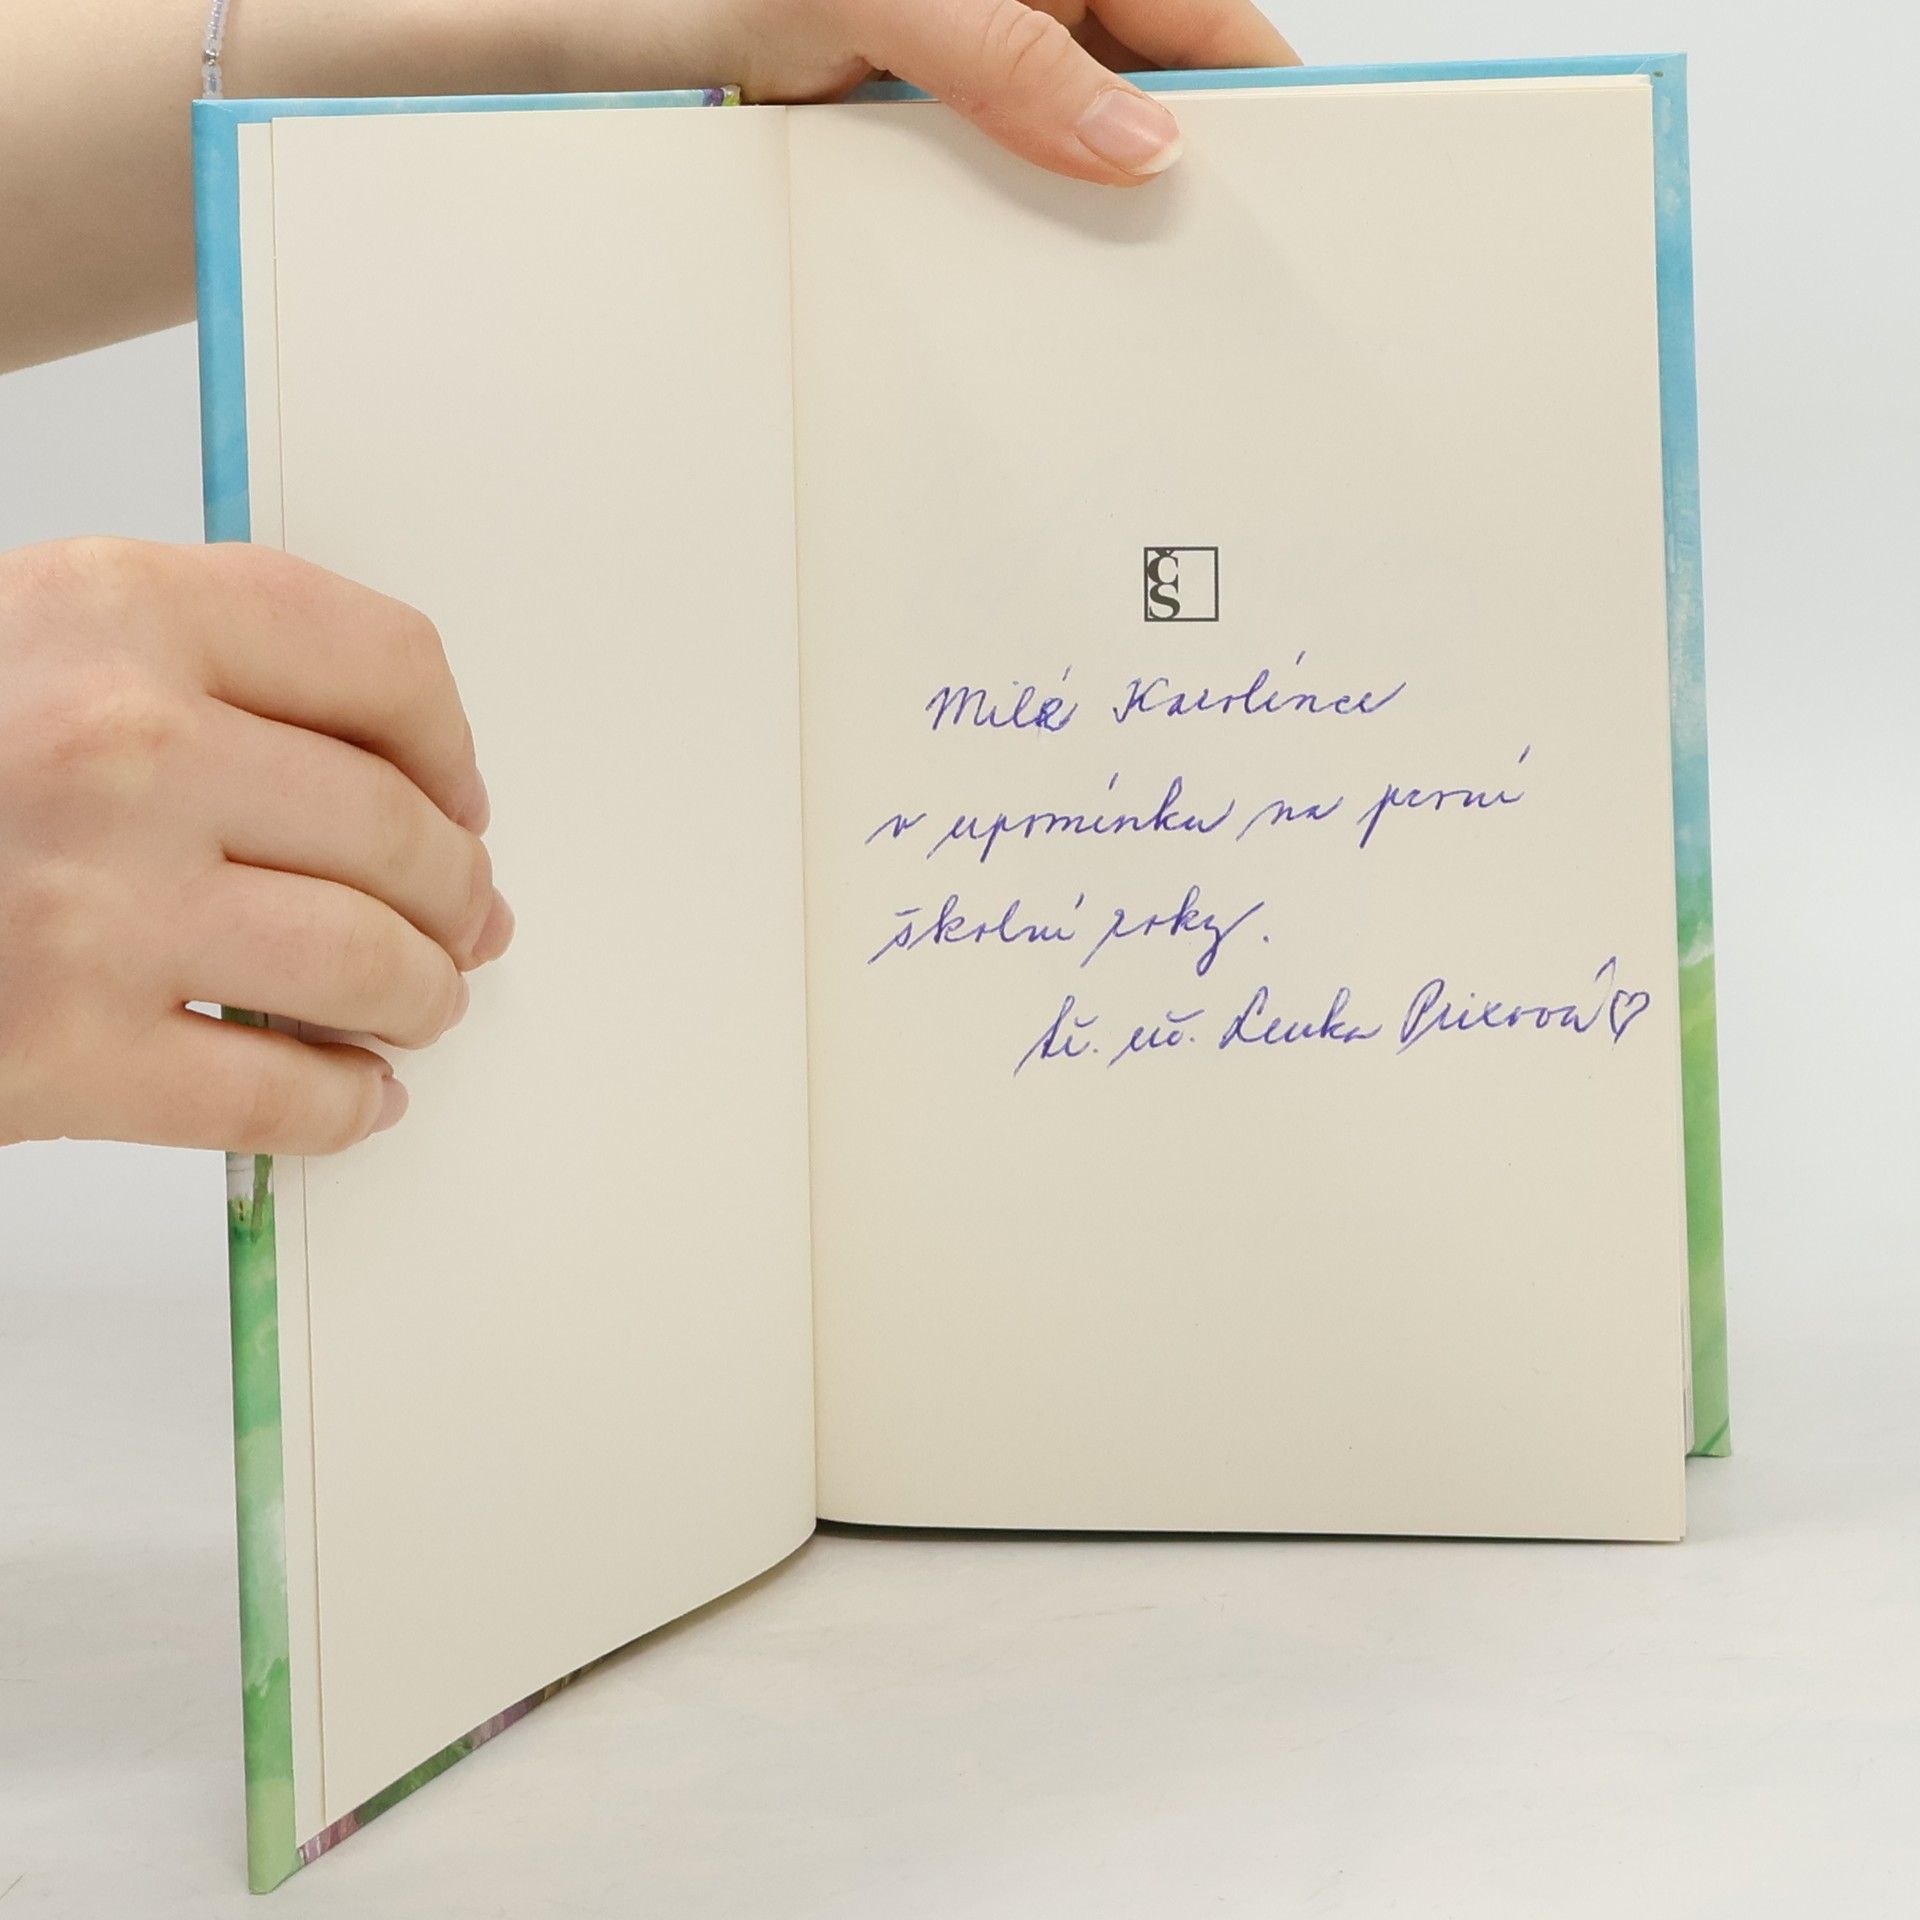 Č
S
Milé Karolínce
v upomínku na první
školní roky.
tř. uč. Lenka Prixová